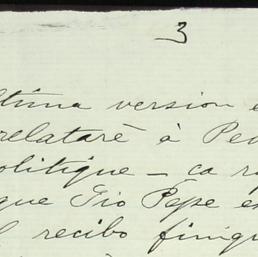 3
ltima version e
relataré à Pe
olitique - ca
que Gio Pepe es
l recibo finiq